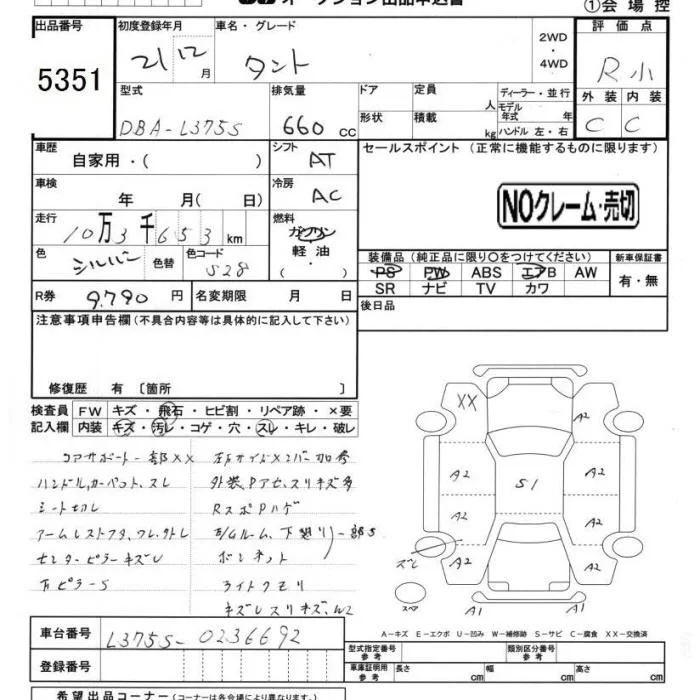 オークション出品申込書
①会場控
出品番号
5351
初度登録年月
21 12 月
車名・グレード
タント
2WD
・
4WD
評価点
R小
外装 内装
C C
型式
DBA-L375S
排気量
660 cc
ドア
形状
定員
人
積載
kg
ディーラー・並行
モデル年式 年
ハンドル 左・右
車歴
自家用・( )
シフト
AT
セールスポイント (正常に機能するものに限ります)
NOクレーム・売切
車検
年 月( 日)
冷房
AC
走行
10万3千653km
燃料
ガソリン
軽油
・( )
色
シルバー
色替
色コード
S28
装備品 (純正品に限り○をつけてください)
PS PW ABS エアB AW
SR ナビ TV カワ
新車保証書
有・無
R券 9,790 円
名変期限 月 日
後日品
注意事項申告欄 (不具合内容等は具体的に記入して下さい)
修復歴 有 〔箇所 〕
検査員記入欄
FW キズ・飛石・ヒビ割・リペア跡・×要
内装 キズ・汚レ・コゲ・穴・スレ・キレ・破レ
コアサポート一部XX
ハンドル,カーペット,スレ
シート切レ
センターピラーキズ
ピラーS
左右サイドメンバー
外装
ボンネット
ライトクモリ
XX
A2
A2
A2
A2
S1
A2
A2
A2
A2
ズレ
スペア
A1
A1
A-キズ E-エクボ U-凹み W-補修跡 S-サビ C-腐食 XX-交換済
車台番号
L375S-0236692
登録番号
型式指定番号 参考
類別区分番号 参考
車庫証明用 参考
長さ cm
幅 cm
高さ cm
希望出品コーナー (コーナーは各会場により異なります)